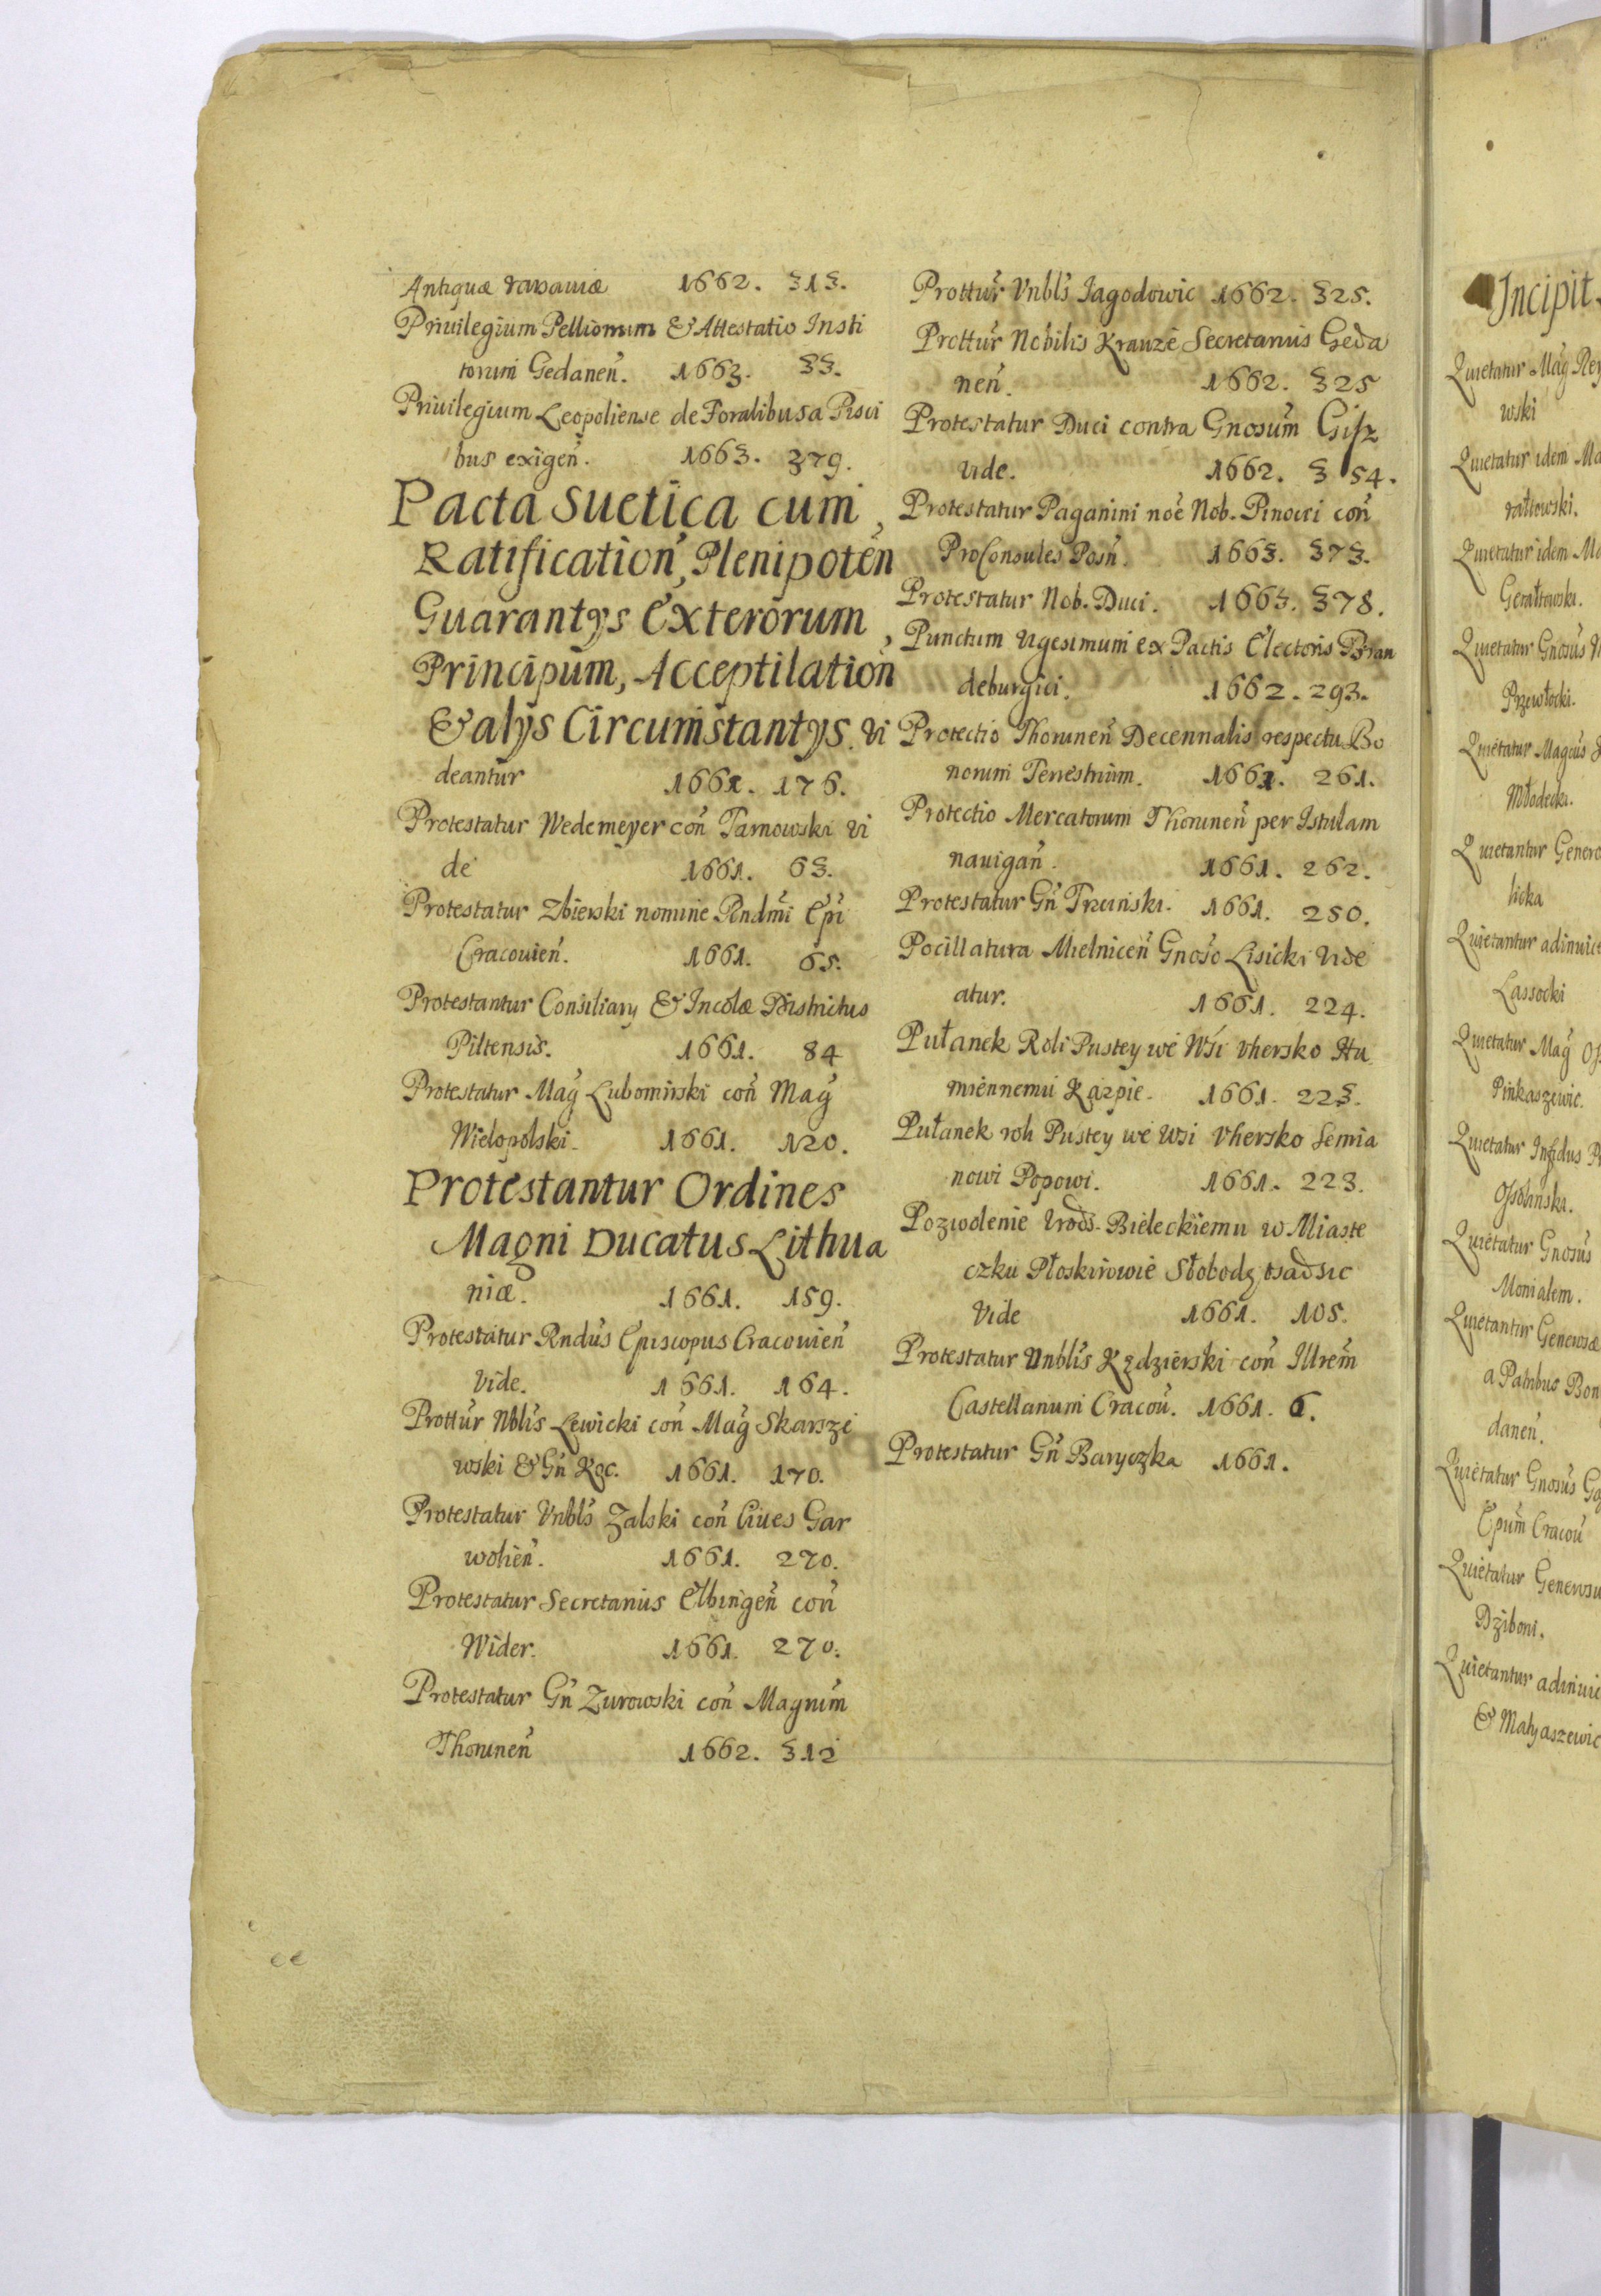 Antiquæ 1662. 313.
Priuilegium Pellionum & Attestatio Insti
torum Gedanen̄. 1663. 33.
Priuilegium Leopoliense de Foralibus a Pisci
bus exigen̄. 1663. 379.
Pacta Suetica cum
Ratification̄, Plenipoten̄
Guarantÿs Exterorum
Principum, Acceptilation̄
& alÿs Circumstantÿs. Vi
deantur 1661. 176.
Protestatur Wedemeyer con̄ Tarnowski Vi
de 1661. 63.
Protestatur Zbierski nomine Rndm̄i Ep̄i
Cracouien̄. 1661. 65.
Protestantur Consiliary & Incolæ Districtus
Piltensis. 1661. 84
Protestatur Mag̃ Lubomirski con̄ Mag̃
Wielopolski. 1661. 120.
Protestantur Ordines
Magni Ducatus Lithua
niæ. 1661. 159.
Protestatur Rndus Episcopus Cracouien̄
Vide. 1661. 164.
Prottur̄ Nbl̄s Lewicki con̄ Mag̃ Skarsze
wski & Gn̄ Koc. 1661. 170.
Protestatur Vnbl̄s Zalski con̄ Ciues Gar
wolien̄. 1661. 270.
Protestatur Secretarius Elbingen̄ con̄
Wider. 1661. 270.
Protestatur Gn̄ Zurowski con̄ Magrum̄
Thorunen̄ 1662. 312
Prottur̄ Vnbl̄s Jagodowic 1662. 325.
Prottur̄ Nobilis Krauze Secretarius Geda
nen̄. 1662. 325
Protestatur Duci contra Gnosum̄ Gisz
Vide. 1662. 354.
Protestatur Paganini noe̅ Nob. Pinocci con̄
ProConsules Posn̄. 1663. 373.
Protestatur Nob. Duci. 1663. 378.
Punctum Vigesimum ex Pactis Electoris Bran
deburgici. 1662. 293.
Protectio Thorunen̄ Decennalis respectu Bo
norum Terrestrium. 1661. 261.
Protectio Mercatorum Thorunen̄ per Istulam
nauigan̄. 1661. 262.
Protestatur Gn̄ Trzcinski. 1661. 250.
Pocillatura Mielnicen̄ Gnoso Lisicki Vide
atur. 1661. 224.
Pułanek Roli Pustey we Wsi Vhersko Hu
miennemu Karpie. 1661. 223.
Pułanek roli Pustey we Wsi Vhersko Semia
nowi Popowi. 1661. 223.
Pozwolenie Vrodz. Bieleckiemu w Miaste
czku Płoskirowie Słobodę osadzic
Vide 1661. 105.
Protestatur Vnbl̄s Kędzierski con̄ Illrem̄
Castellanum Cracou̅. 1661. 6.
Protestatur Gn̄ Baryczka 1661.
Incipit
Quietatur Mag̃
wski
Quietatur idem Ma
rałtowski.
Quietatur idem Ma
Gerałtowski.
Quietatur Gnosus
Przewłocki.
Quietatur Magcus
Młodecki.
Quietantur Genero
licka
Quietantur adinuice
Lassocki
Quietatur Mag̃
Pinkaszewic.
Quietatur
Ossolinski.
Quietatur Gnosus
Monialem.
Quietantur Generosæ
a Patribus Bon
danen̄.
Quietatur Gnosus
Epum̄ Cracou̅
Quietatur Generosu
Dziboni.
Quietantur adinuic
& Matyaszewic